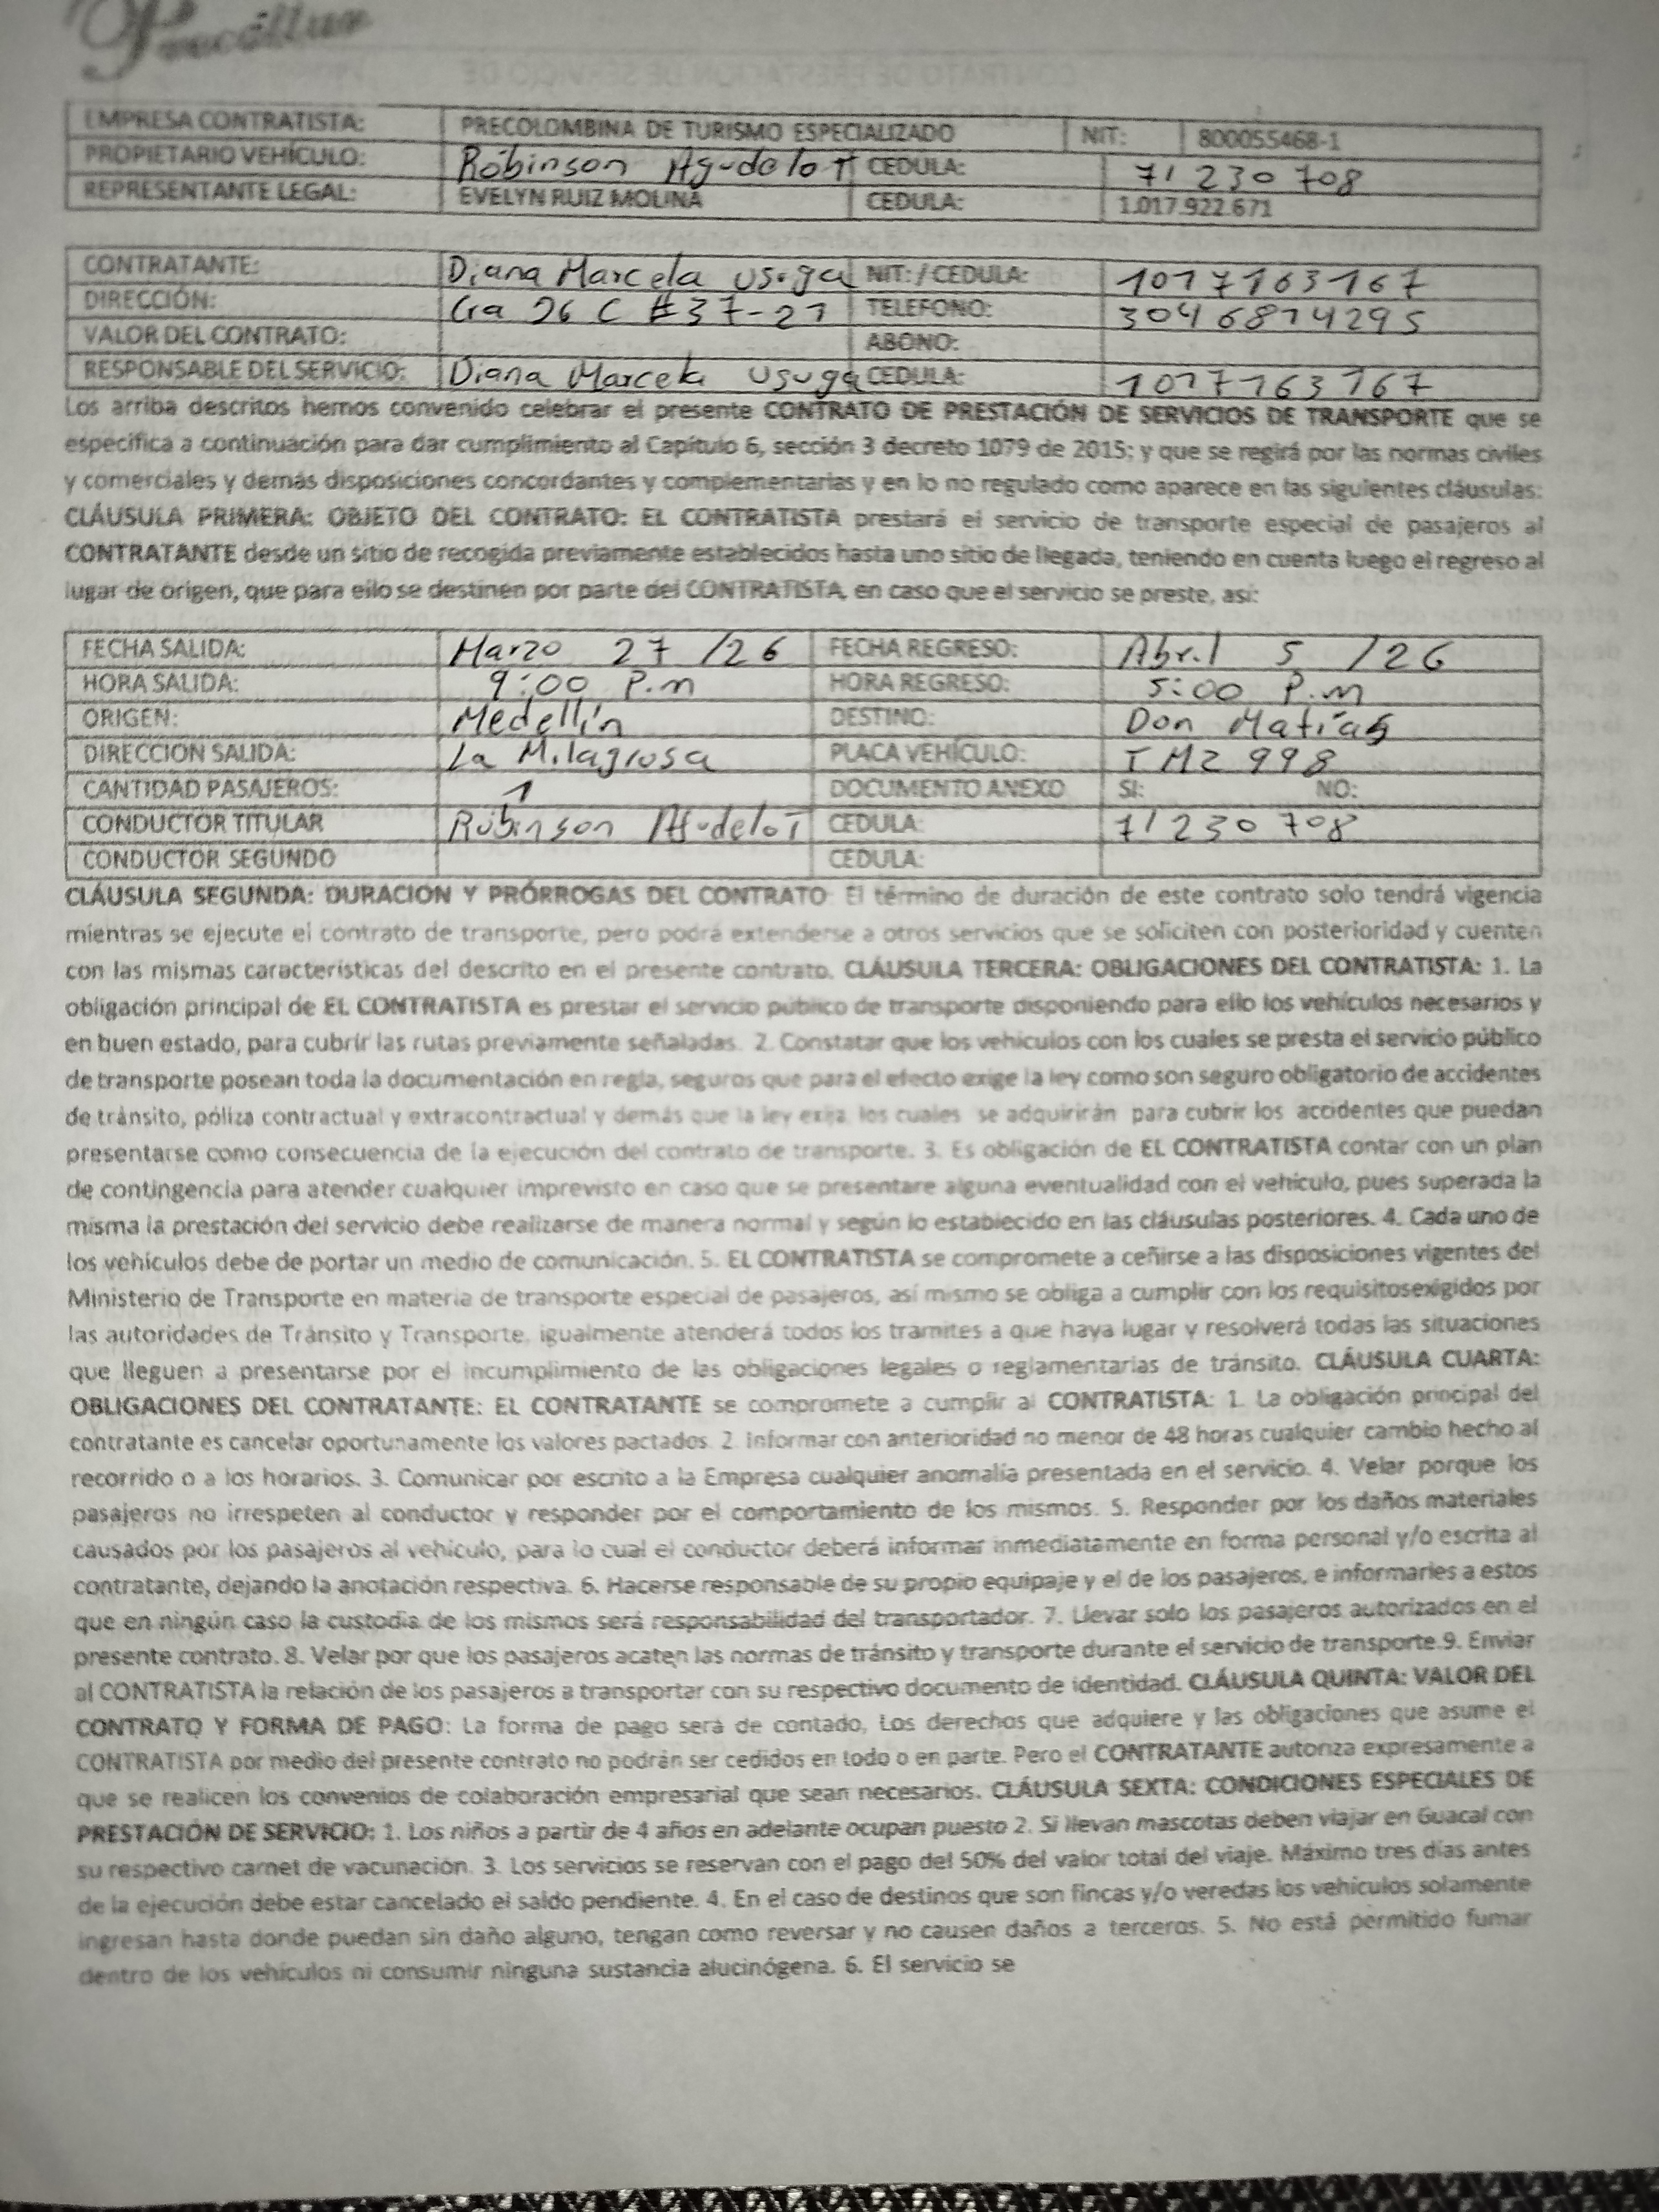 Precoltur
EMPRESA CONTRATISTA: PRECOLOMBINA DE TURISMO ESPECIALIZADO NIT: 800055468-1
PROPIETARIO VEHÍCULO: Róbinson Agudelo T CEDULA: 71 230 708
REPRESENTANTE LEGAL: EVELYN RUIZ MOLINA CEDULA: 1.017.922.671
CONTRATANTE: Diana Marcela Usuga NIT: / CEDULA: 1017163167
DIRECCIÓN: Cra 26 C #37-21 TELEFONO: 3046814295
VALOR DEL CONTRATO: ABONO:
RESPONSABLE DEL SERVICIO: Diana Marcela Usuga CEDULA: 1017163167
Los arriba descritos hemos convenido celebrar el presente CONTRATO DE PRESTACIÓN DE SERVICIOS DE TRANSPORTE que se
especifica a continuación para dar cumplimiento al Capítulo 6, sección 3 decreto 1079 de 2015; y que se regirá por las normas civiles
y comerciales y demás disposiciones concordantes y complementarias y en lo no regulado como aparece en las siguientes cláusulas:
CLÁUSULA PRIMERA: OBJETO DEL CONTRATO: EL CONTRATISTA prestará el servicio de transporte especial de pasajeros al
CONTRATANTE desde un sitio de recogida previamente establecidos hasta uno sitio de llegada, teniendo en cuenta luego el regreso al
lugar de origen, que para ello se destinen por parte del CONTRATISTA, en caso que el servicio se preste, así:
FECHA SALIDA: Marzo 27 /26 FECHA REGRESO: Abril 5 /26
HORA SALIDA: 9:00 P.m HORA REGRESO: 5:00 P.m
ORIGEN: Medellín DESTINO: Don Matías
DIRECCION SALIDA: La Milagrosa PLACA VEHÍCULO: TMZ 998
CANTIDAD PASAJEROS: 1 DOCUMENTO ANEXO SI: NO:
CONDUCTOR TITULAR Róbinson Agudelo T CEDULA: 71 230 708
CONDUCTOR SEGUNDO CEDULA:
CLÁUSULA SEGUNDA: DURACIÓN Y PRÓRROGAS DEL CONTRATO: El término de duración de este contrato solo tendrá vigencia
mientras se ejecute el contrato de transporte, pero podrá extenderse a otros servicios que se soliciten con posterioridad y cuenten
con las mismas características del descrito en el presente contrato. CLÁUSULA TERCERA: OBLIGACIONES DEL CONTRATISTA: 1. La
obligación principal de EL CONTRATISTA es prestar el servicio público de transporte disponiendo para ello los vehículos necesarios y
en buen estado, para cubrir las rutas previamente señaladas. 2. Constatar que los vehículos con los cuales se presta el servicio público
de transporte posean toda la documentación en regla, seguros que para el efecto exige la ley como son seguro obligatorio de accidentes
de tránsito, póliza contractual y extracontractual y demás que la ley exija, los cuales se adquirirán para cubrir los accidentes que puedan
presentarse como consecuencia de la ejecución del contrato de transporte. 3. Es obligación de EL CONTRATISTA contar con un plan
de contingencia para atender cualquier imprevisto en caso que se presentare alguna eventualidad con el vehículo, pues superada la
misma la prestación del servicio debe realizarse de manera normal y según lo establecido en las cláusulas posteriores. 4. Cada uno de
los vehículos debe de portar un medio de comunicación. 5. EL CONTRATISTA se compromete a ceñirse a las disposiciones vigentes del
Ministerio de Transporte en materia de transporte especial de pasajeros, así mismo se obliga a cumplir con los requisitosexigidos por
las autoridades de Tránsito y Transporte, igualmente atenderá todos los tramites a que haya lugar y resolverá todas las situaciones
que lleguen a presentarse por el incumplimiento de las obligaciones legales o reglamentarias de tránsito. CLÁUSULA CUARTA:
OBLIGACIONES DEL CONTRATANTE: EL CONTRATANTE se compromete a cumplir al CONTRATISTA: 1. La obligación principal del
contratante es cancelar oportunamente los valores pactados. 2. Informar con anterioridad no menor de 48 horas cualquier cambio hecho al
recorrido o a los horarios. 3. Comunicar por escrito a la Empresa cualquier anomalía presentada en el servicio. 4. Velar porque los
pasajeros no irrespeten al conductor y responder por el comportamiento de los mismos. 5. Responder por los daños materiales
causados por los pasajeros al vehículo, para lo cual el conductor deberá informar inmediatamente en forma personal y/o escrita al
contratante, dejando la anotación respectiva. 6. Hacerse responsable de su propio equipaje y el de los pasajeros, e informarles a estos
que en ningún caso la custodia de los mismos será responsabilidad del transportador. 7. Llevar solo los pasajeros autorizados en el
presente contrato. 8. Velar por que los pasajeros acaten las normas de tránsito y transporte durante el servicio de transporte.9. Enviar
al CONTRATISTA la relación de los pasajeros a transportar con su respectivo documento de identidad. CLÁUSULA QUINTA: VALOR DEL
CONTRATO Y FORMA DE PAGO: La forma de pago será de contado, Los derechos que adquiere y las obligaciones que asume el
CONTRATISTA por medio del presente contrato no podrán ser cedidos en todo o en parte. Pero el CONTRATANTE autoriza expresamente a
que se realicen los convenios de colaboración empresarial que sean necesarios. CLÁUSULA SEXTA: CONDICIONES ESPECIALES DE
PRESTACIÓN DE SERVICIO: 1. Los niños a partir de 4 años en adelante ocupan puesto 2. Si llevan mascotas deben viajar en Guacal con
su respectivo carnet de vacunación. 3. Los servicios se reservan con el pago del 50% del valor total del viaje. Máximo tres días antes
de la ejecución debe estar cancelado el saldo pendiente. 4. En el caso de destinos que son fincas y/o veredas los vehículos solamente
ingresan hasta donde puedan sin daño alguno, tengan como reversar y no causen daños a terceros. 5. No está permitido fumar
dentro de los vehículos ni consumir ninguna sustancia alucinógena. 6. El servicio se